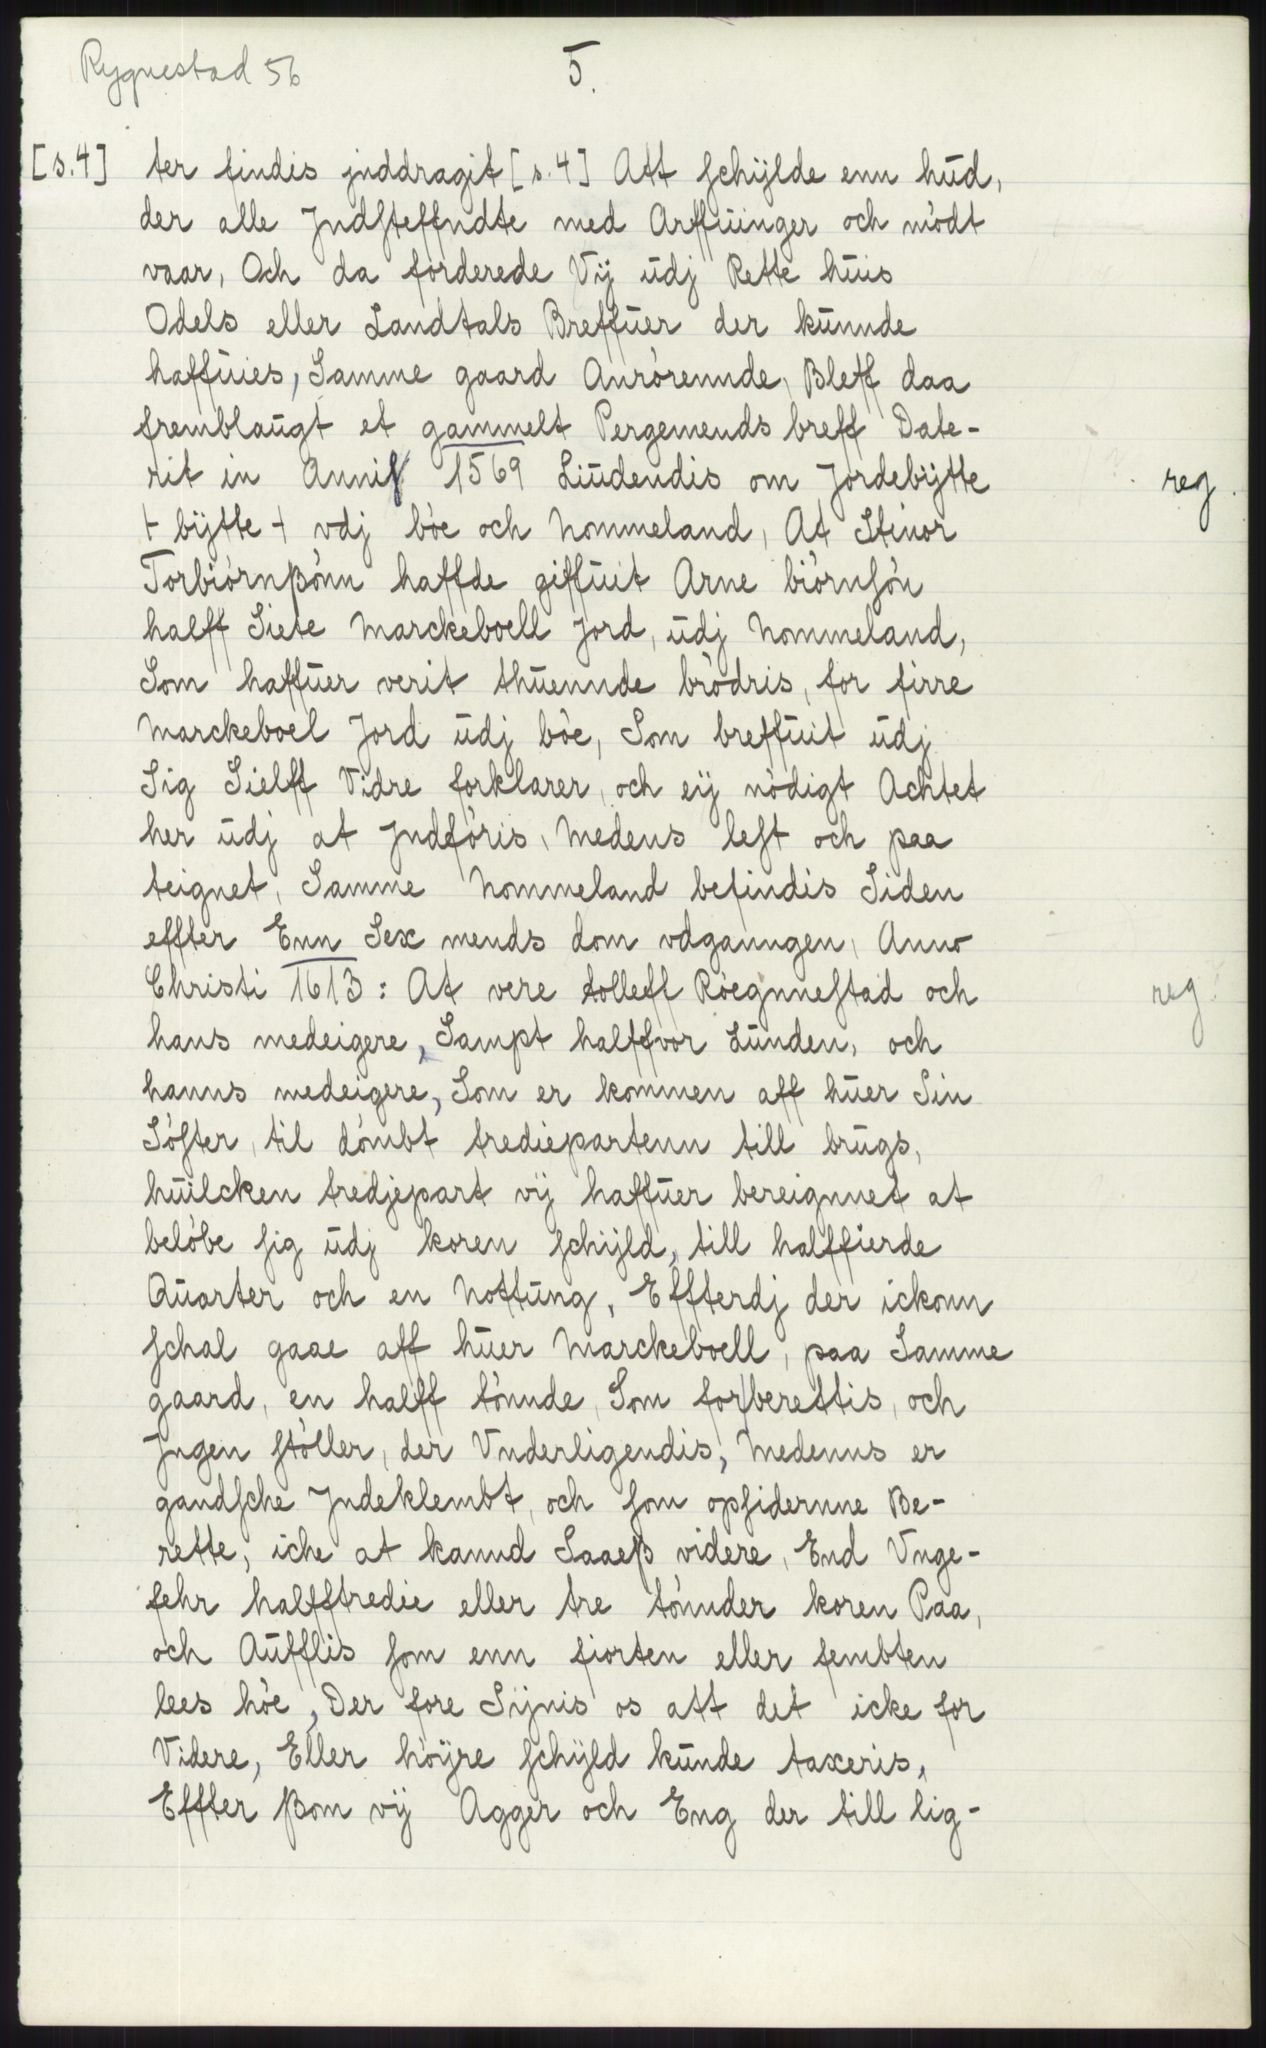 Rygnestad 56
5.
[s.4] ter findis jnddragit [s.4] Att schÿlde enn hud,
der alle Jndsteffndte med Arffuinger och mödt
vaar, Och da forderede Vij udj Rette huis
Odels eller Landtals Breffuer der kunnde
haffuies, Samme gaard Anrörennde, Bleff daa
fremblaugt et gammelt Pergemends breff Date-
rit in Anni 1569 Liudendis om Jordebÿtte reg.
+ bÿtte + vdj böe och Nommeland, At Stinor
Torbiörnßönn haffde giffuit Arne biörnsön
halff Siete Marckeboell Jord, udj Nommeland,
Som haffuer verit thuennde brödris, for firre
Marckeboel Jord udj böe, Som breffuit udj
Sig Sielff Vidre forklarer, och eÿ nödigt Achtet
her udj at Jndföris, Medens lest och paa
teignet, Samme Nommeland befindis Siden
effter Enn Sex mends dom vdganngen, Anno
Christi 1613: At vere tolleff Röegnnestad och reg.
hans medeigere, Sampt halffvor Lunden, och
hanns medeigere, Som er kommen aff huer Sin
Söster, til dömbt trediepartenn till brugs,
huilcken tredjepart vÿ haffuer bereignnet at
belöbe sig udj koren schÿld, till halffierde
Quarter och en Nottung, Effterdj der ickonn
schal gaae aff huer Marckeboell, paa Samme
gaard, en halff tönnde, Som forberettis, och
Jngen stöller, der Vnderligendis, Medenns er
gandsche Jndeklembt, och som opsidernne Be-
rette, iche at kannd Saaeß videre, End Vnge-
fehr halfftredie eller tre tönnder koren Paa,
och Aufflis som enn fiorten eller fembten
lees höe, Der fore Sÿnis os att det icke for
Videre, Eller höÿre schÿld kunde taxeris,
Effter ßom vÿ Agger och Eng der till lig-